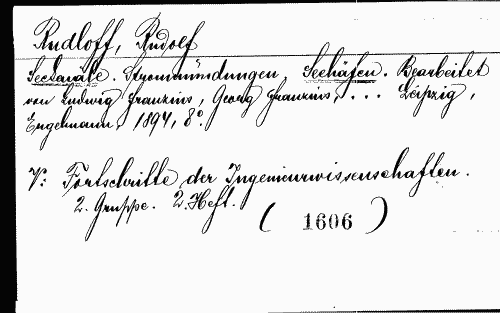 Rudloff, Rudolf
Seekanäle. Strommündungen Seehäfen. Bearbeitet
von Ludwig Franzius, Georg Franzius, ... Leipzig,
Engelmann, 1894, 8°.
V: Fortschritte der Ingenieurwissenschaften.
2. Gruppe. 2. Heft.
( 1606 )